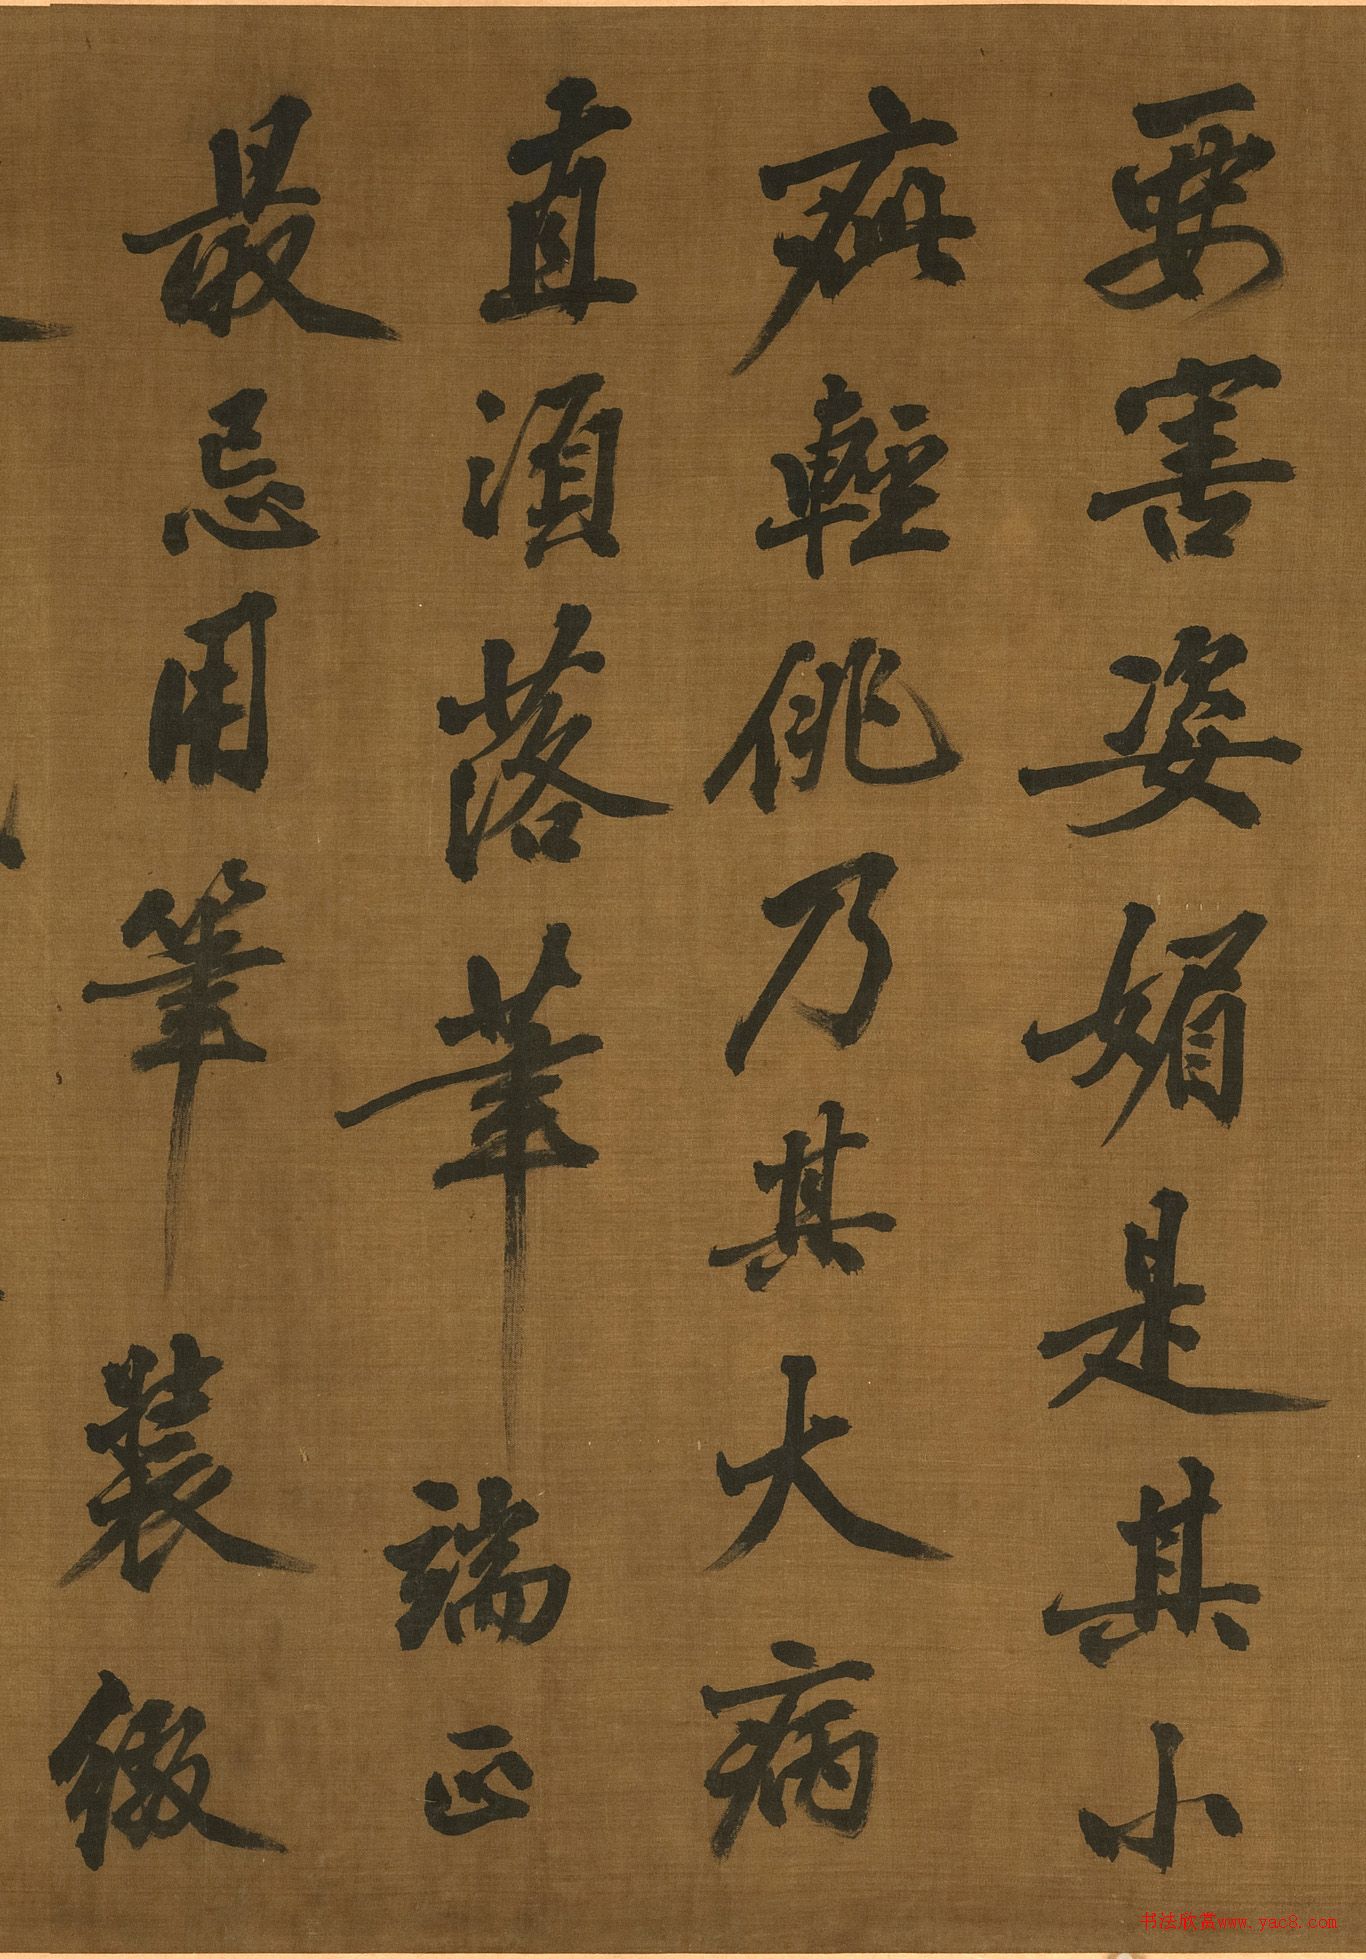 要害姿媚是其小
疵輕佻乃其大病
直須落筆端正
最忌用筆裝綴
书法欣赏www.yac8.com